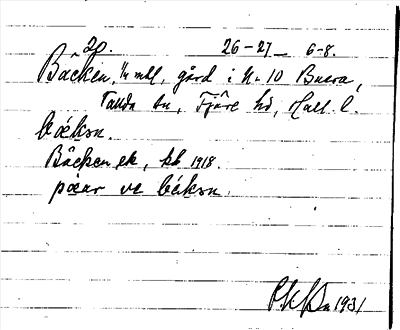 2p. 26-27 6-8.
Bäcken, 1/4 mtl, gård i N:o 10 Buera,
Tauda sn, Fjäre hd, Hall. l.
bǽksn.
Bäcken ek, kb 1918.
pœ̀ar ve bǽksn.
1931